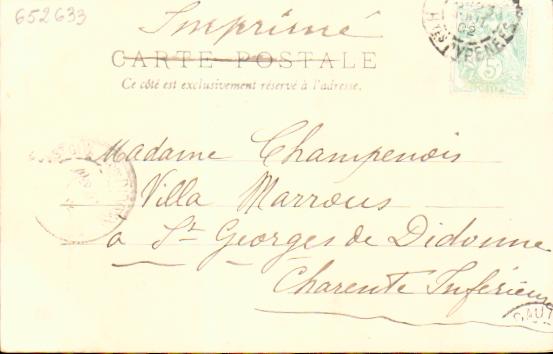 652633
Imprimé
CARTE POSTALE
Ce côté est exclusivement réservé à l'adresse.
5
Madame Champenois
Villa Marrous
à St Georges de Didonne
Charente Inférieure